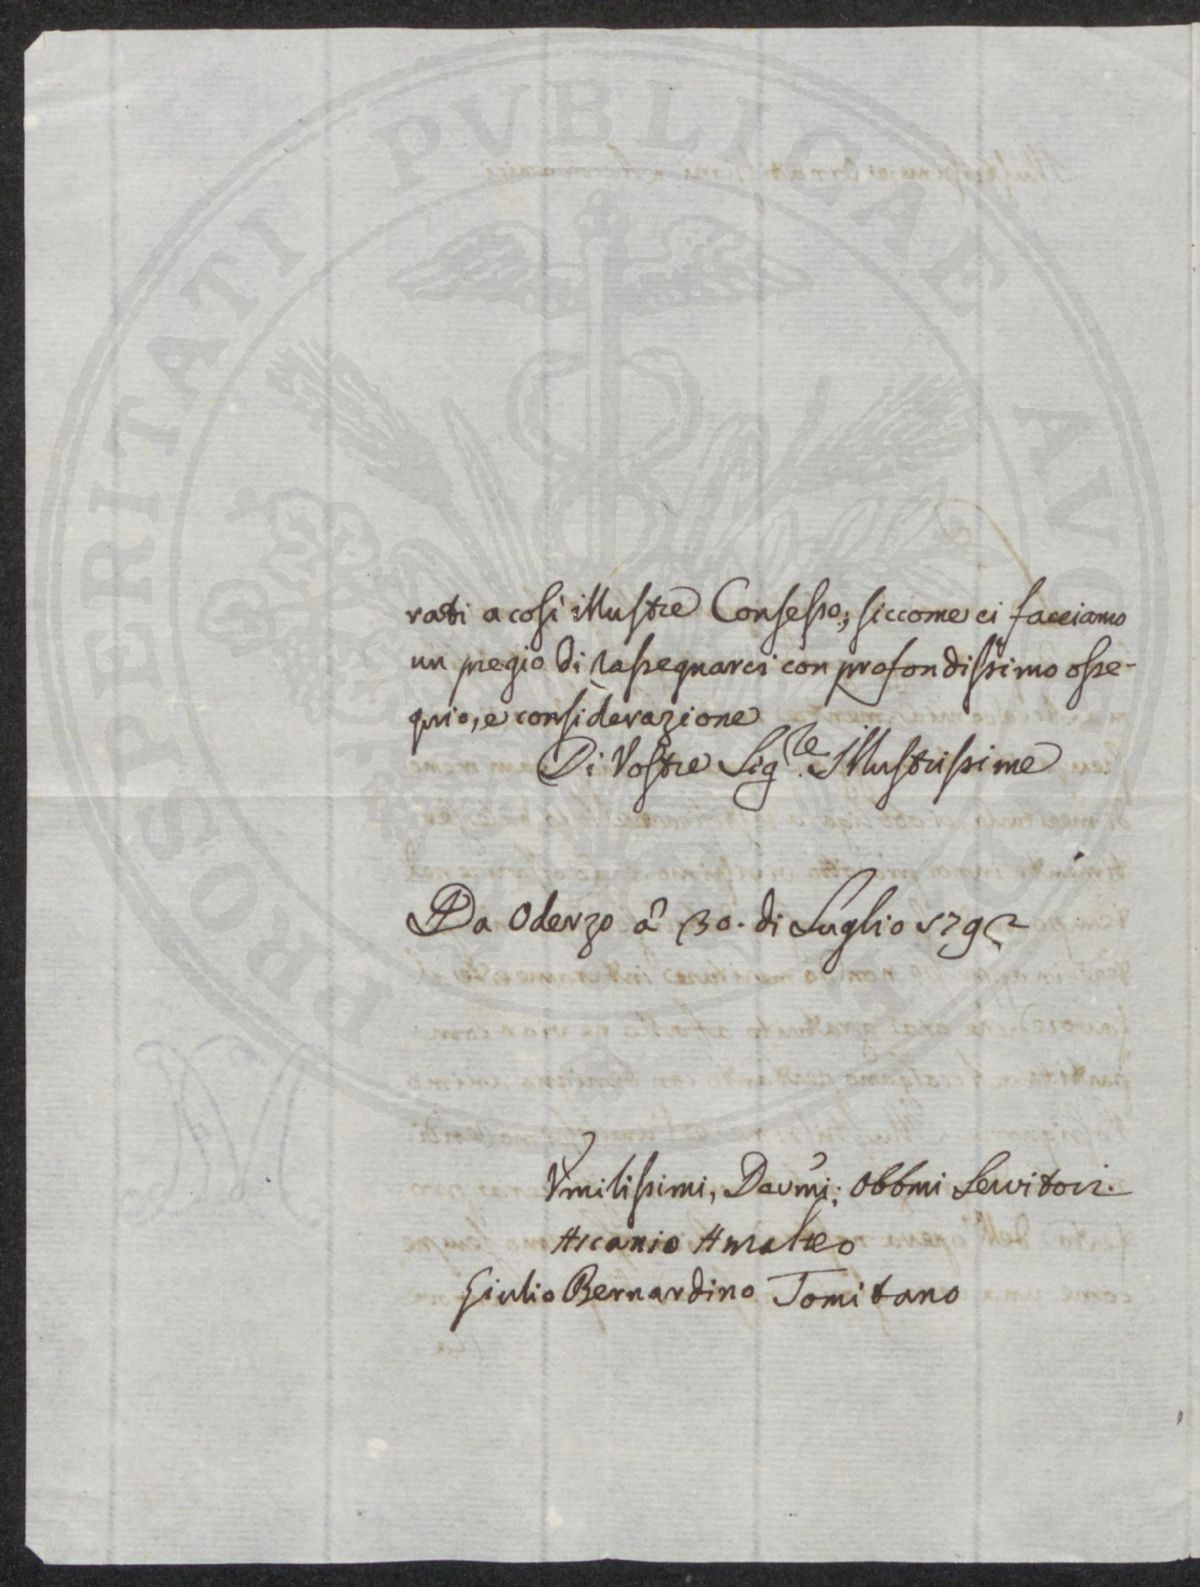 PROSPERITATI PVBLICAE AVGENDAE
rati a così illustre Consesso; siccome ci facciamo
un pregio di rassegnarci con profondissimo osse-
quio, e considerazione
Di Vostre Sig.re Illustrissime
Da Oderzo a 30. di Luglio 1792
Vmilissimi, Devmi: Obbmi Servitori.
Ascanio Amalteo
Giulio Bernardino Tomitano